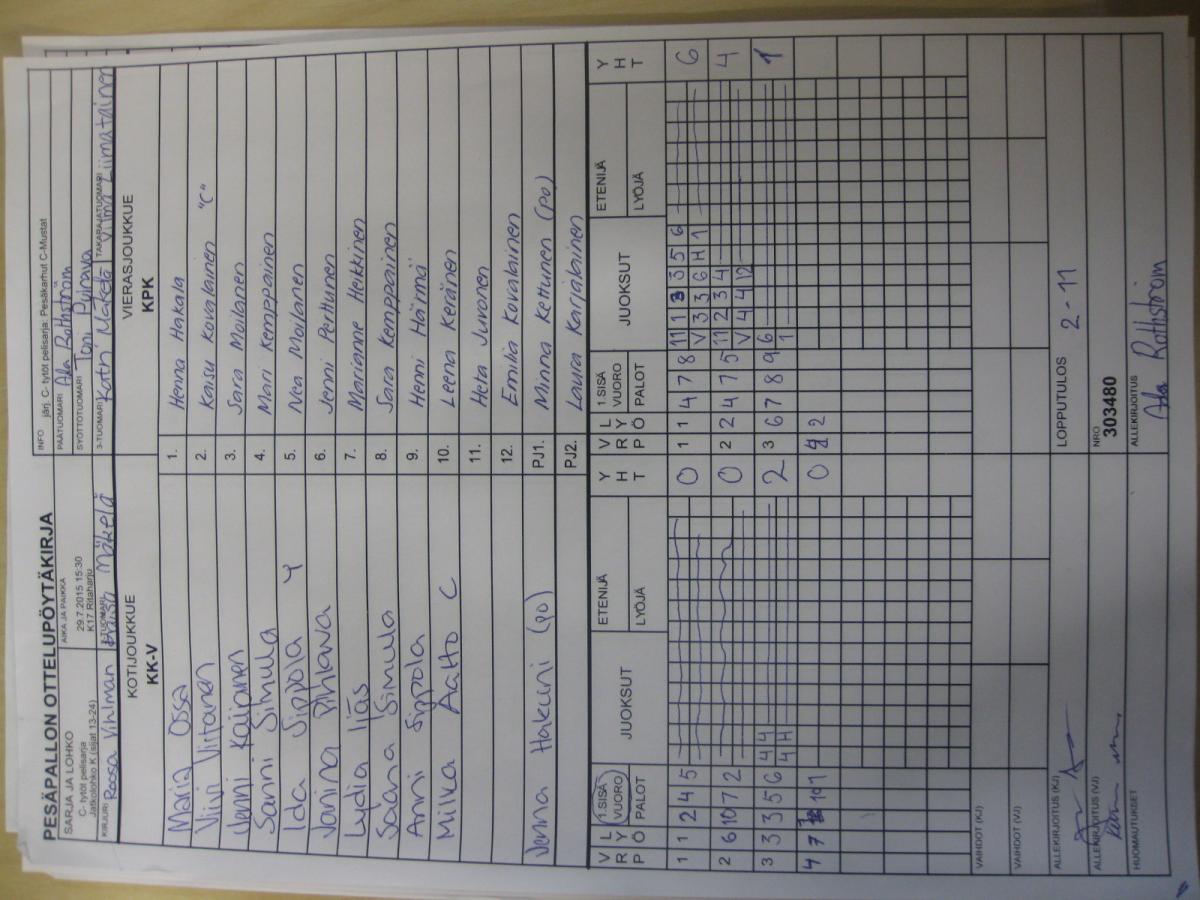 PESÄPALLON OTTELUPÖYTÄKIRJA
SARJA JA LOHKO
C- tytöt pelisarja
Jatkolohko K (sijat 13-24)
AIKA JA PAIKKA
29.7.2015 15:30
K17 Ritaharju
INFO järj. C- tytöt pelisarja: Pesäkarhut C-Mustat
PÄÄTUOMARI Ada Rothström
SYÖTTÖTUOMARI Toni
KIRJURI Roosa Vihlman
2-TUOMARI Maisa Mäkelä
3-TUOMARI Katri Mäkelä
TAKARAJATUOMARI Vilma Liimatainen
KOTIJOUKKUE
KK-V
VIERASJOUKKUE
KPK
Maria Ossa 1. Henna Hakala
Viivi Virtanen 2. Kaisu Kovalainen "C"
Venni Kaipinen 3. Sara Moilanen
Sanni Simula 4. Mari Kemppainen
Ida Sippola Y 5. Nea Moilanen
Janina Pihlava 6. Jenni Perttunen
Lydia Ijäs 7. Marianne Heikkinen
Saana Simula 8. Sara Kemppainen
Anni Sippola 9. Henni Härmä
Milka Aatto C 10. Leena Keränen
11. Heta Juvonen
12. Emilia Kovalainen
Jenna Hakuni (po) PJ1. Minna Kettunen (po)
PJ2. Laura Karjalainen
V R P L Y Ö 1.SISÄ VUORO PALOT JUOKSUT ETENIJÄ LYÖJÄ Y H T V R P L Y Ö 1.SISÄ VUORO PALOT JUOKSUT ETENIJÄ LYÖJÄ Y H T
1 1 2 4 5 0 1 1 4 7 8 11 1 3 3 5 6 6
V 3 3 6 H 1
2 6 10 7 2 0 2 2 4 7 5 11 2 3 4 4
V 4 4 12
3 3 3 5 6 4 4 2 3 6 7 8 9 6 1
4 H 1
4 7 10 1 0 4 2
VAIHDOT (KJ)
VAIHDOT (VJ)
ALLEKIRJOITUS (KJ)
LOPPUTULOS 2-11
ALLEKIRJOITUS (VJ)
NRO
303480
HUOMAUTUKSET
ALLEKIRJOITUS
Ada Rothström